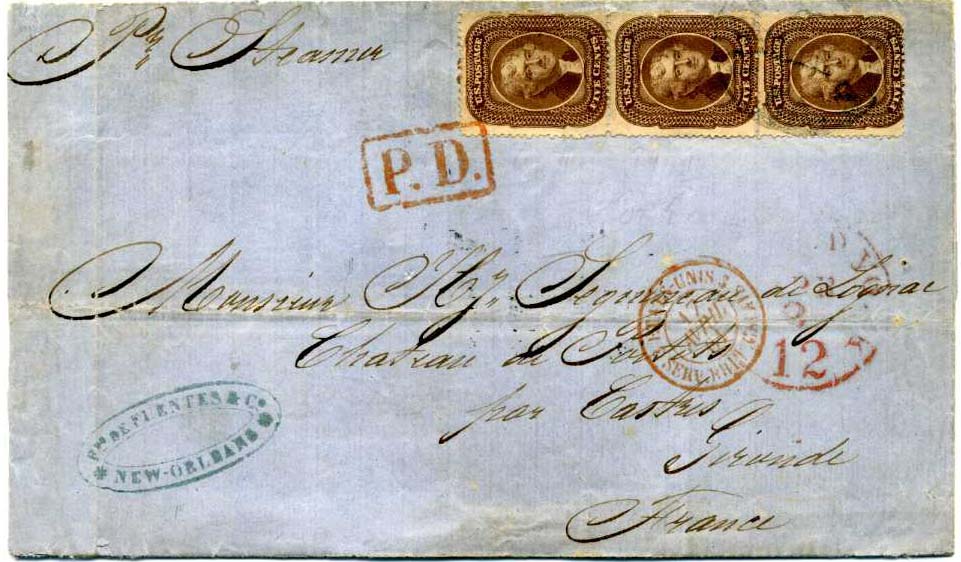 Pr Steamer
U.S. POSTAGE FIVE CENTS
U.S. POSTAGE FIVE CENTS
U.S. POSTAGE FIVE CENTS
P.D.
Monsieur Hy de Lognac
Chateau de
par Castres
Gironde
France
ETATS-UNIS SERV. BRIT. CALAIS
AVRIL
12
DE FUENTES & Co
NEW-ORLEANS